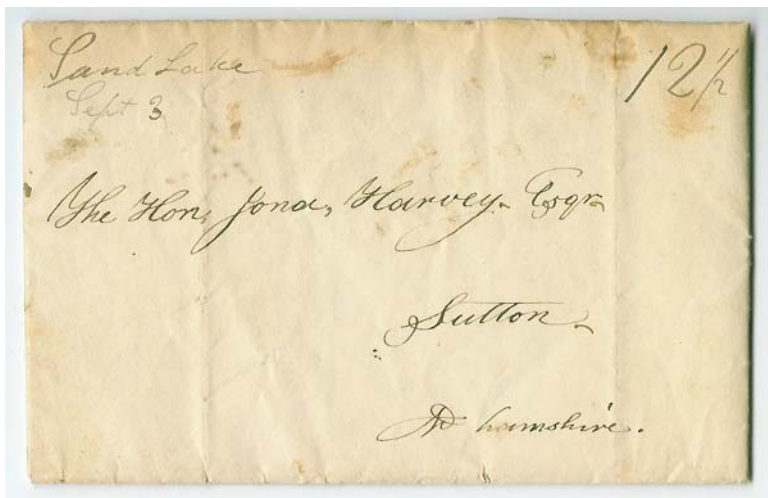 Sand Lake
Sept 3
12 1/2
The Hon, Jona, Harvey. Esqr
Sutton
N hamshire.